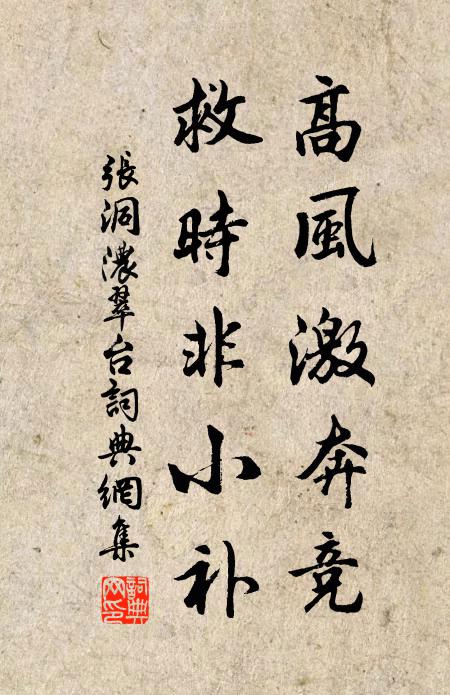 高風激奔競
救時非小补
張洞濃翠台詞典網集
詞典